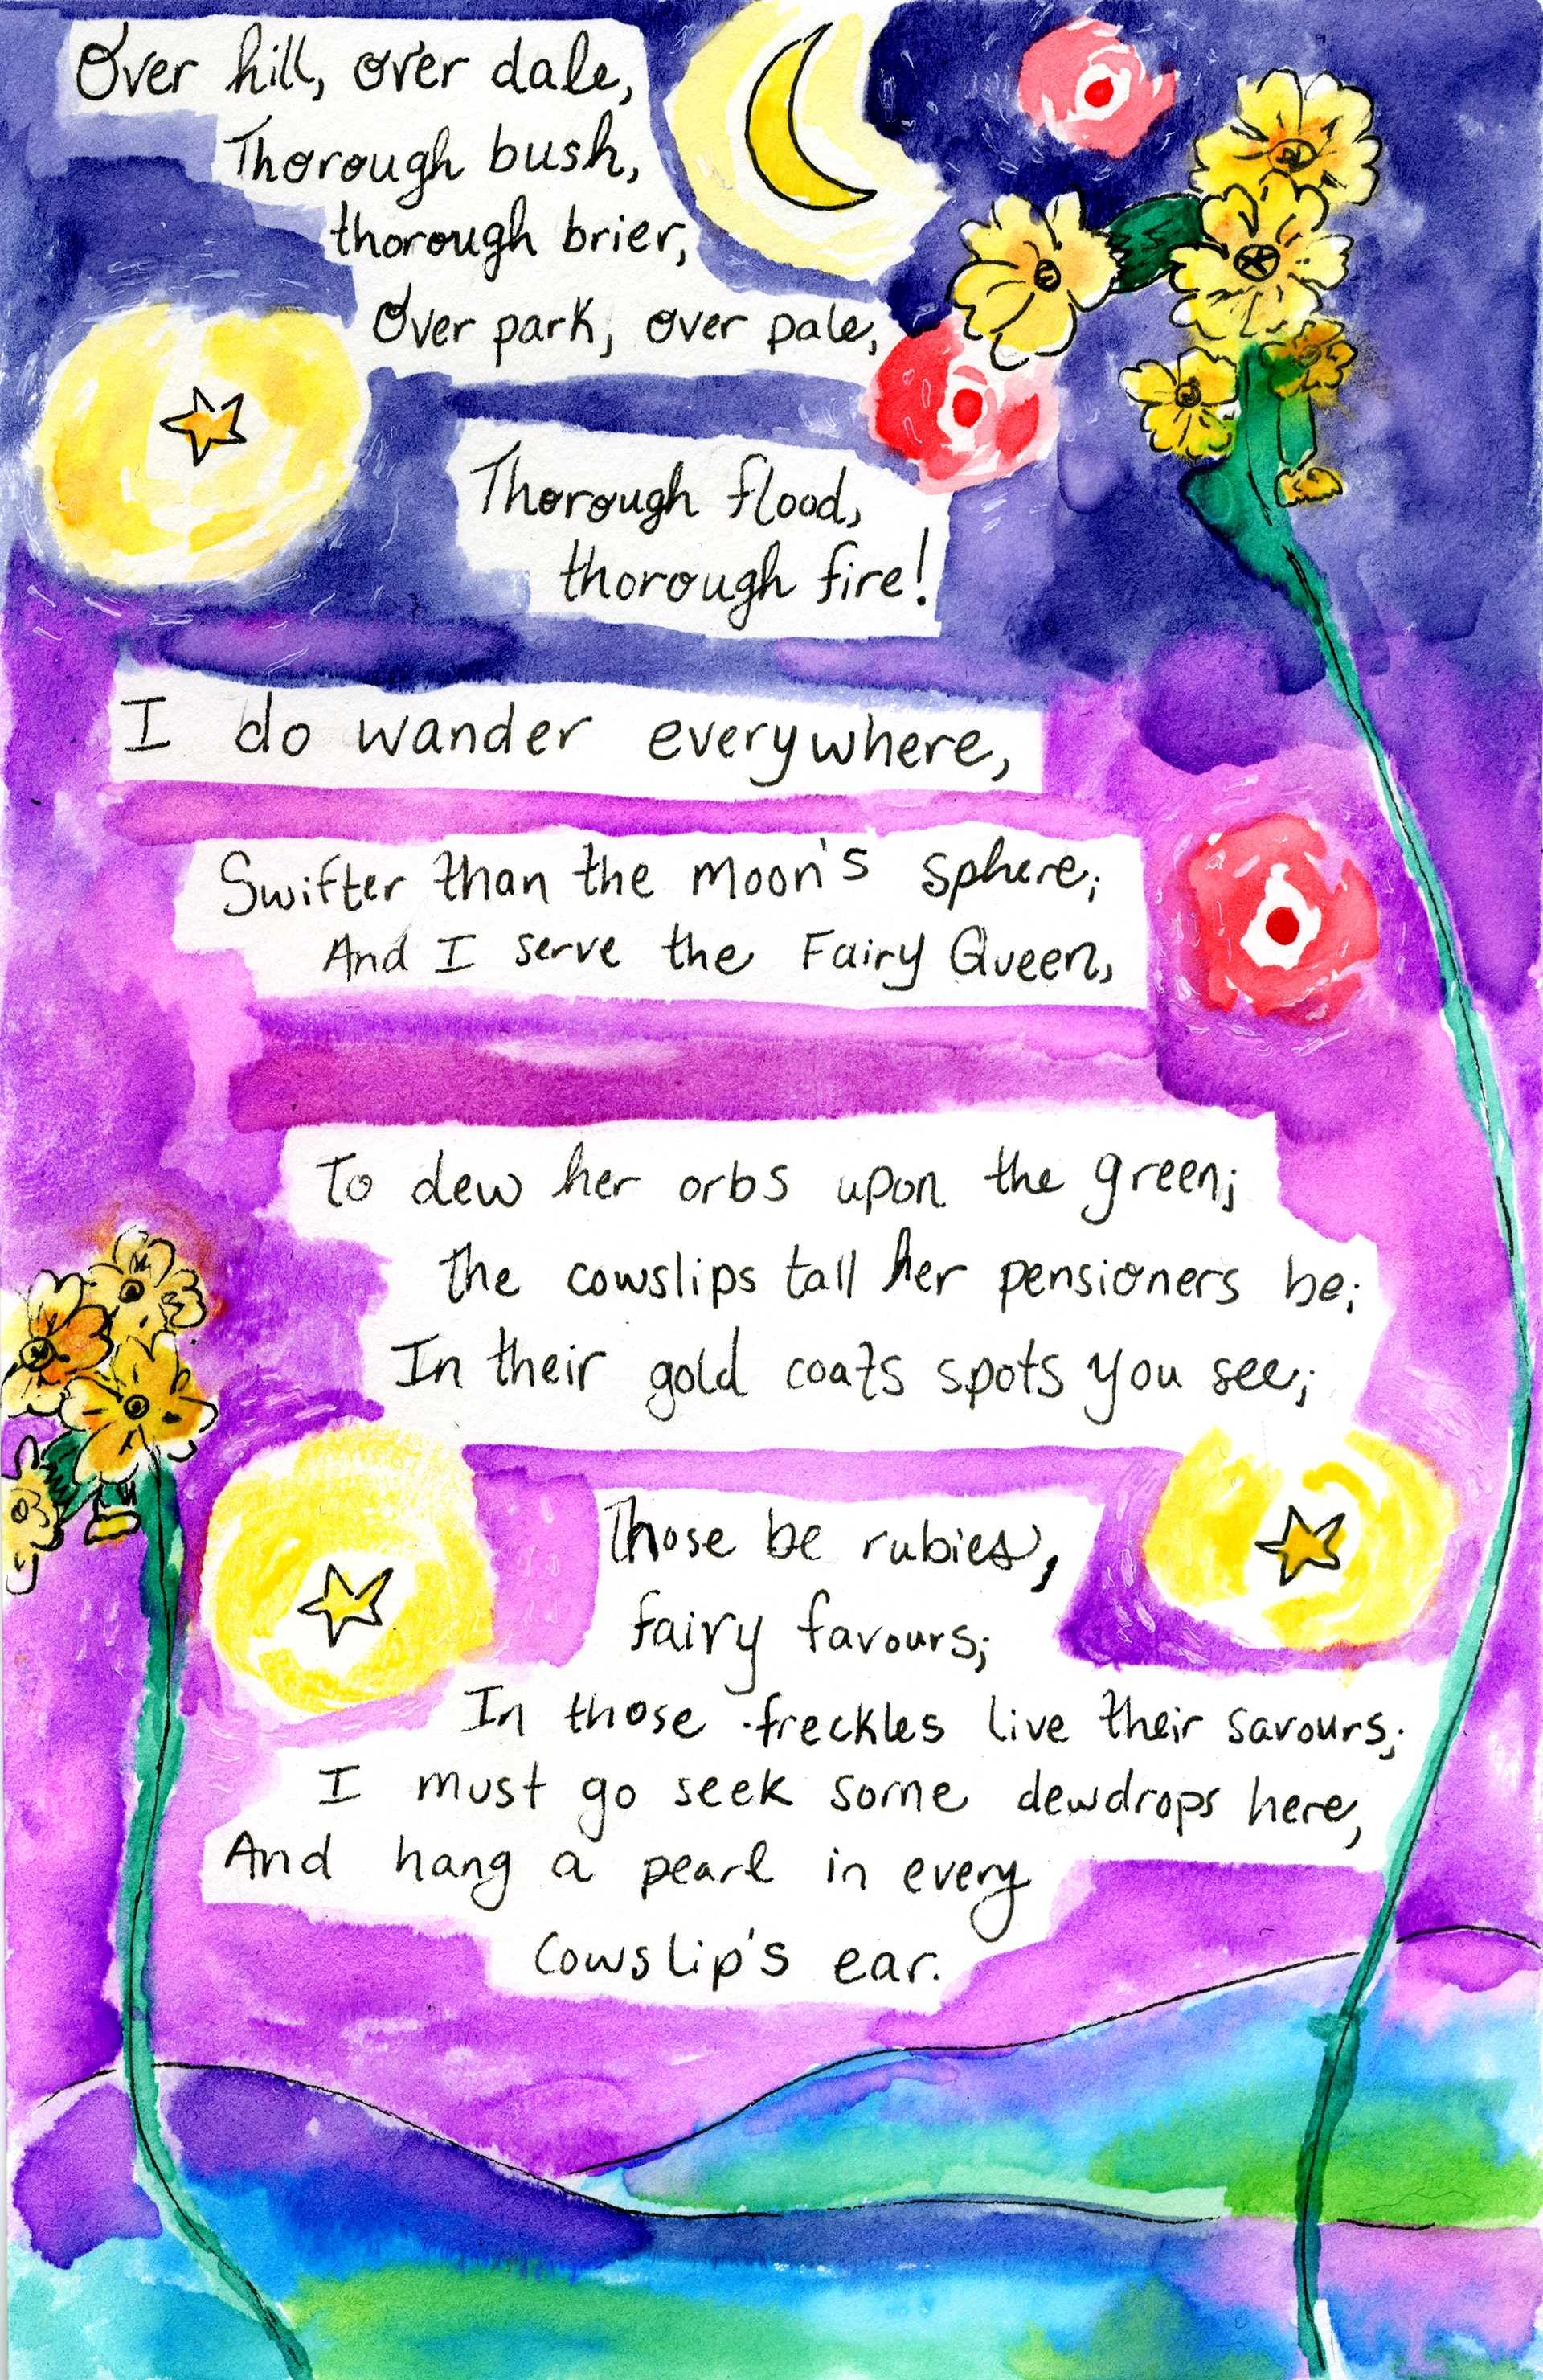 Over hill, over dale,
Thorough bush,
thorough brier,
Over park, over pale,
Thorough flood,
thorough fire!
I do wander everywhere,
Swifter than the moon's sphere;
And I serve the Fairy Queen,
To dew her orbs upon the green;
the cowslips tall her pensioners be;
In their gold coats spots you see;
Those be rubies,
fairy favours;
In those freckles live their savours;
I must go seek some dewdrops here,
And hang a pearl in every
Cowslip's ear.